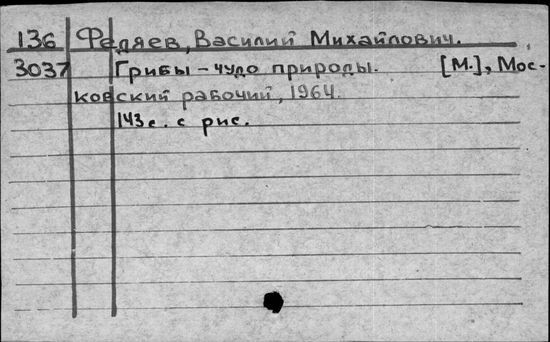 136 Федяев, Василий Михайлович.
3037 Грибы – чудо природы. [М.], Мос-
ковский рабочий, 1964.
143 с. с рис.